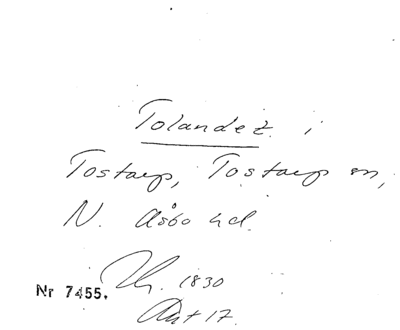 Tolandet i
Tostarp, Tostarp sn,
N. Åsbo hd.
Th. 1830
Nr 7455.
Akt 17.